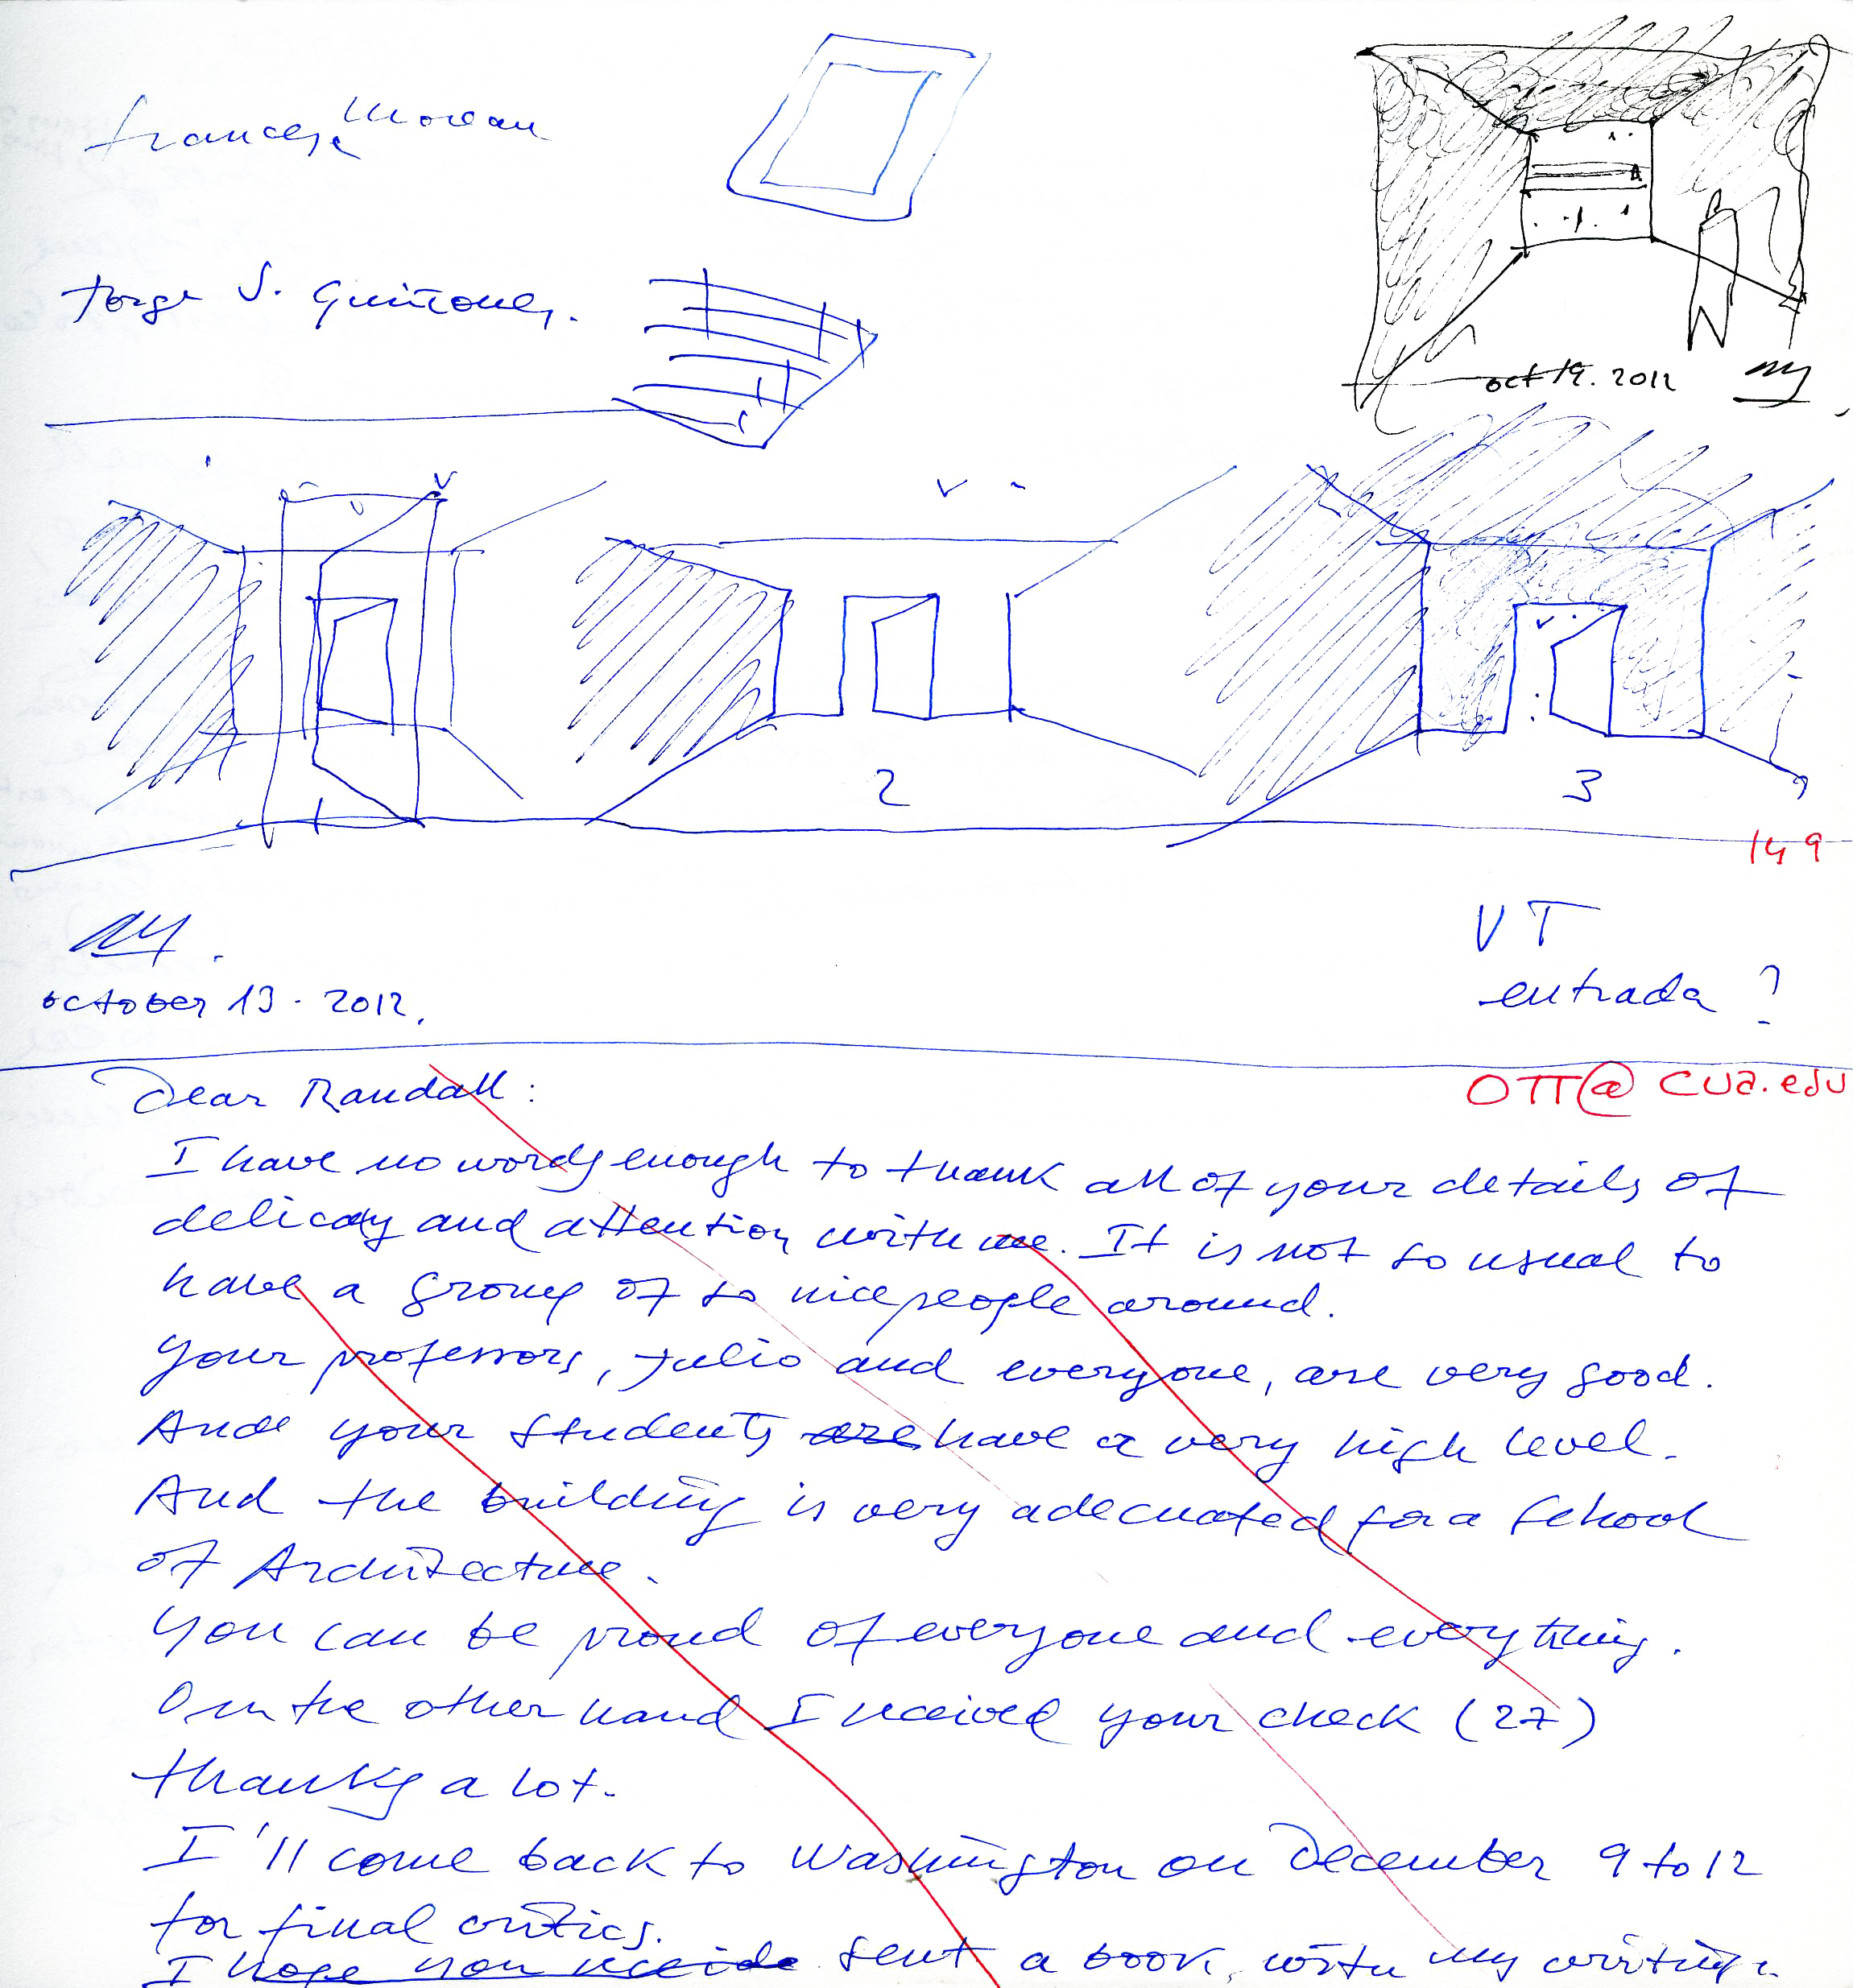 Moreau
oct 19. 2012
Jorge S. Quiñones.
1
2
3
149
VT
entrada ?
october 13 - 2012.
OTT@cua.edu
Dear Randall :
I have no words enough to thank all of your details of
delicacy and attention with me. It is not so usual to
have a group of so nice people around.
Your professors, Julio and everyone, are very good.
And your students are have a very high level.
And the building is very adecuated for a School
of Architecture.
You can be proud of everyone and everything.
On the other hand I received your check (27)
thanks a lot.
I'll come back to Washington on December 9 to 12
for final critics.
I hope you sent a book, with my writing